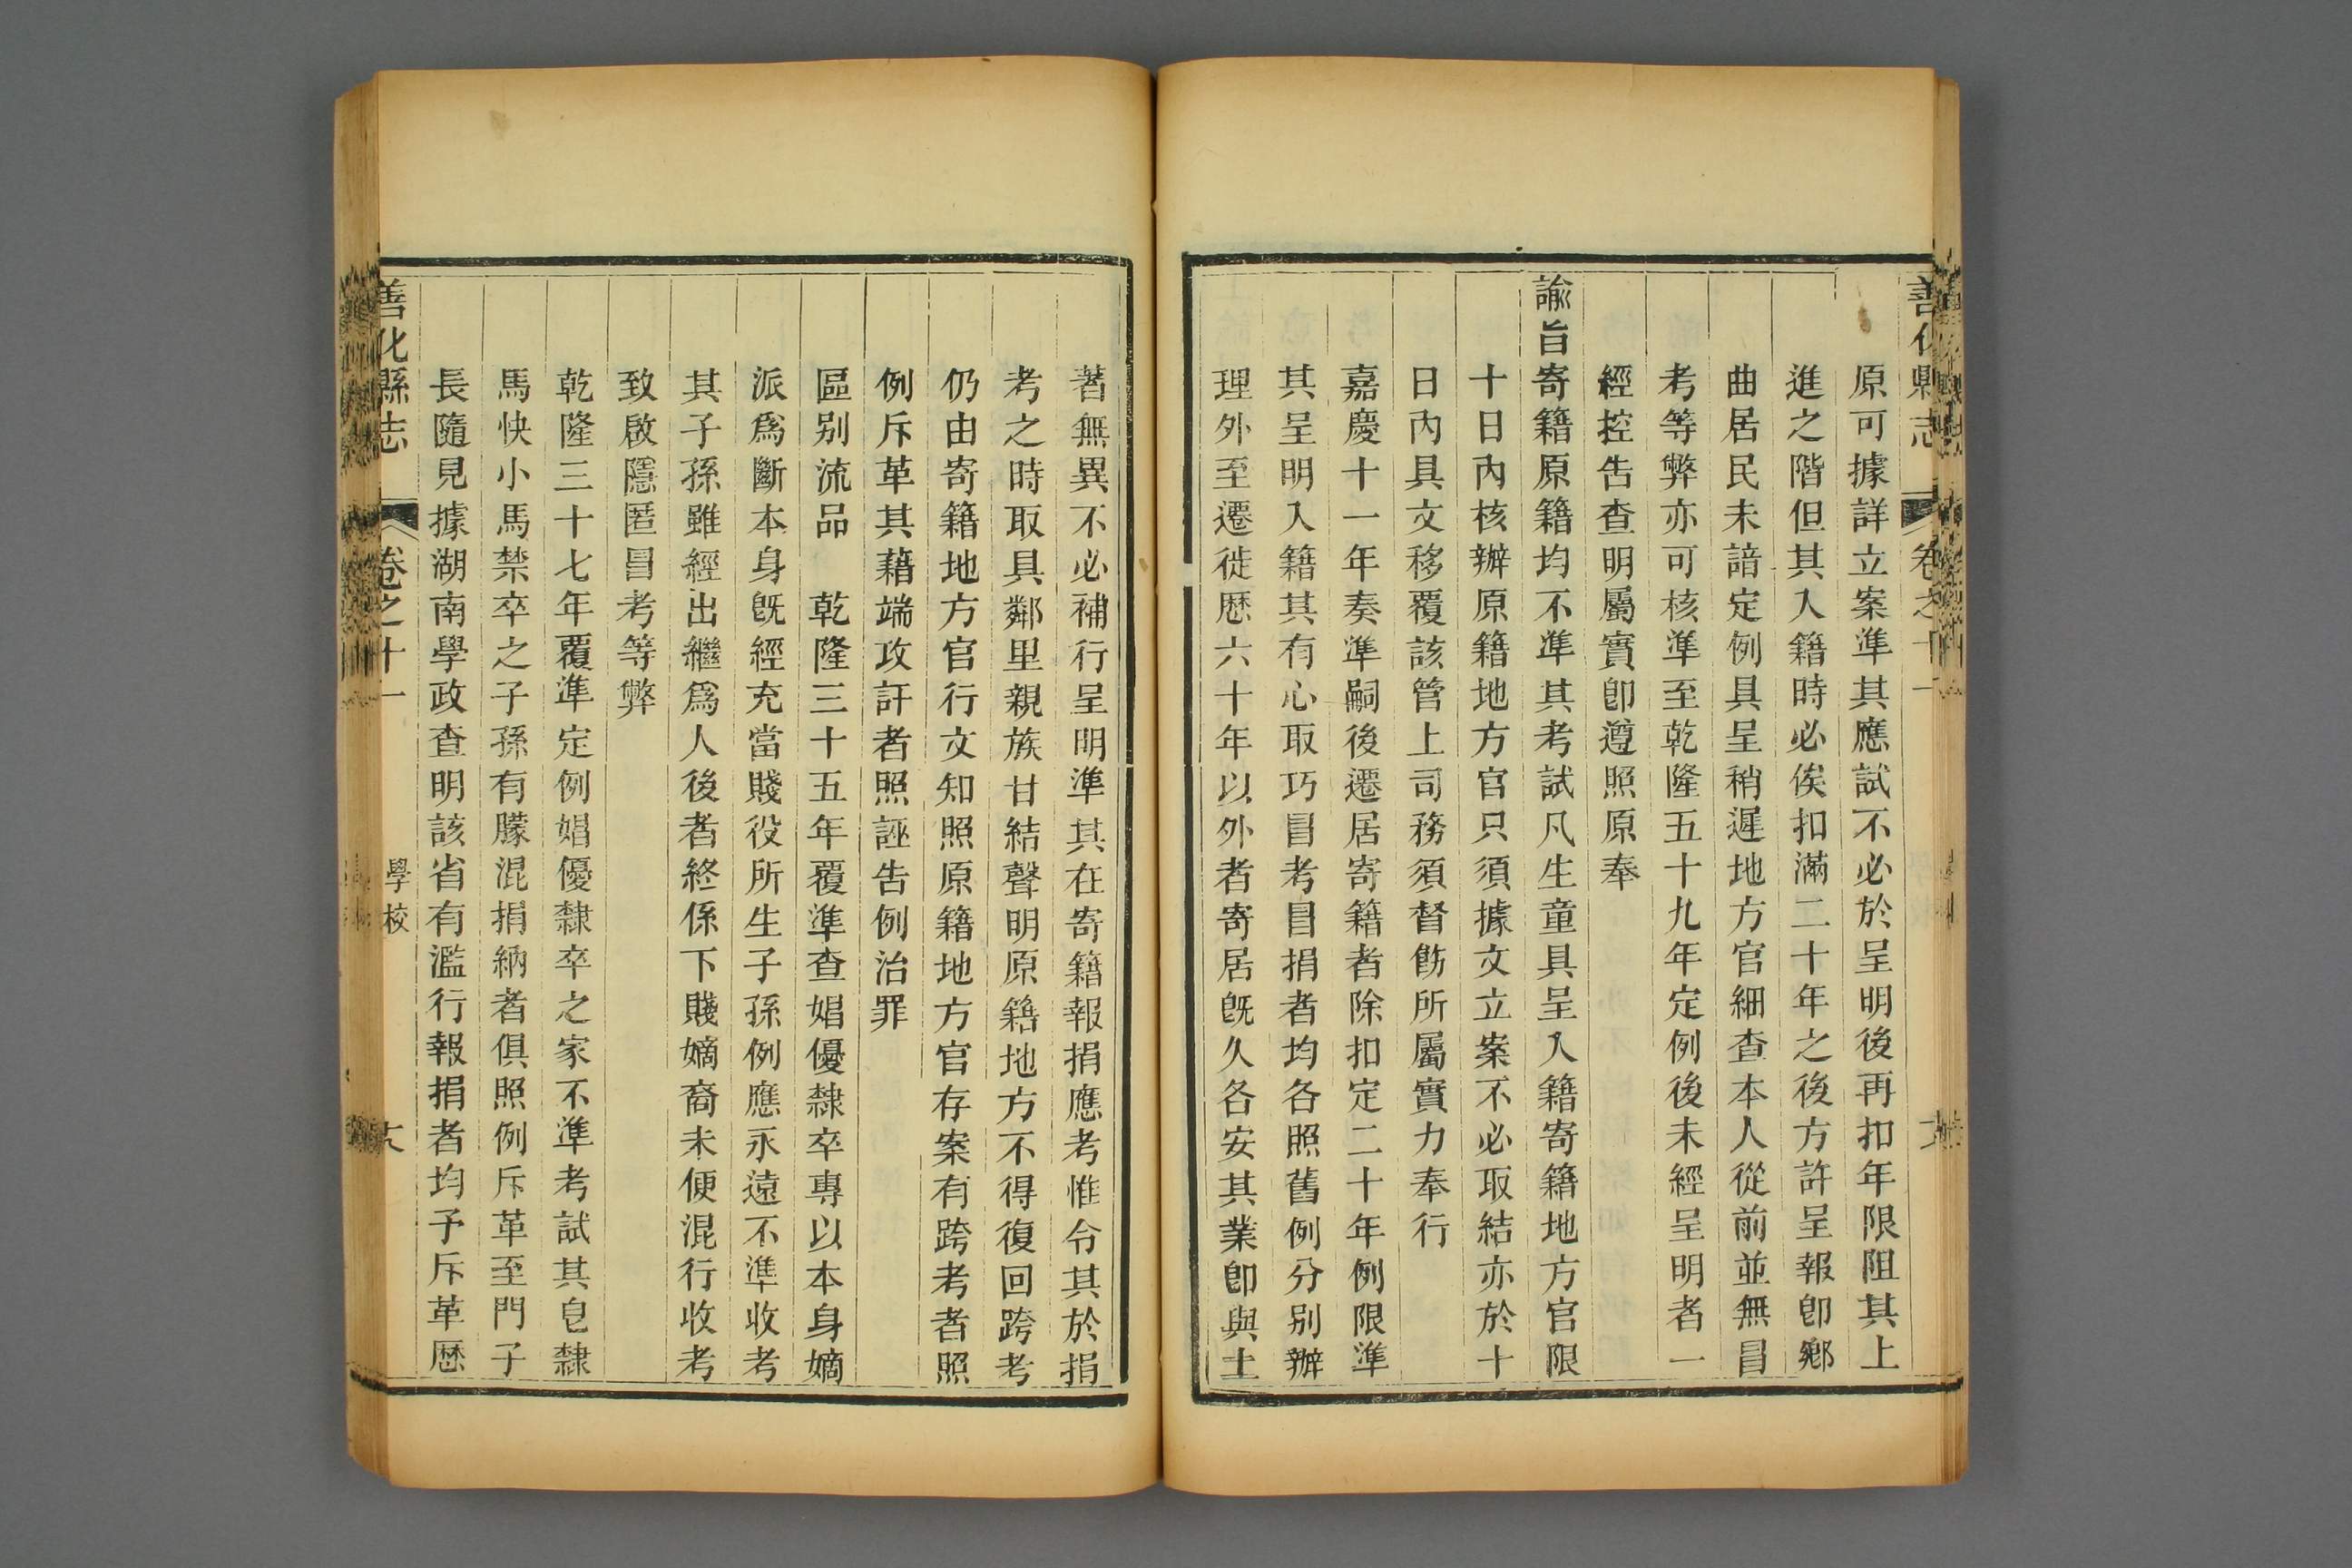 善化縣志 卷之十一
原可據詳立案準其應試不必於呈明後再扣年限阻其上
進之階但其入籍時必俟扣滿二十年之後方許呈報卽鄉
曲居民未諳定例具呈稍遲地方官細查本人從前並無冒
考等弊亦可核準至乾隆五十九年定例後未經呈明者一
經控告查明屬實卽遵照原奉
諭旨寄籍原籍均不準其考試凡生童具呈入籍寄籍地方官限
十日內核辦原籍地方官只須據文立案不必取結亦於十
日內具文移覆該管上司務須督飭所屬實力奉行
嘉慶十一年奏準嗣後遷居寄籍者除扣定二十年例限準
其呈明入籍其有心取巧冒考冒捐者均各照舊例分別辦
理外至遷徙歷六十年以外者寄居旣久各安其業卽與土
著無異不必補行呈明準其在寄籍報捐應考惟令其於捐
考之時取具鄰里親族甘結聲明原籍地方不得復回跨考
仍由寄籍地方官行文知照原籍地方官存案有跨考者照
例斥革其藉端攻訐者照誣告例治罪
區別流品 乾隆三十五年覆準查娼優隸卒專以本身嫡
派爲斷本身旣經充當賤役所生子孫例應永遠不準收考
其子孫雖經出繼爲人後者終係下賤嫡裔未便混行收考
致啟隱匿冒考等弊
乾隆三十七年覆準定例娼優隸卒之家不準考試其皂隸
馬快小馬禁卒之子孫有朦混捐納者俱照例斥革至門子
長隨見據湖南學政查明該省有濫行報捐者均予斥革歷
善化縣志 卷之十一 學校